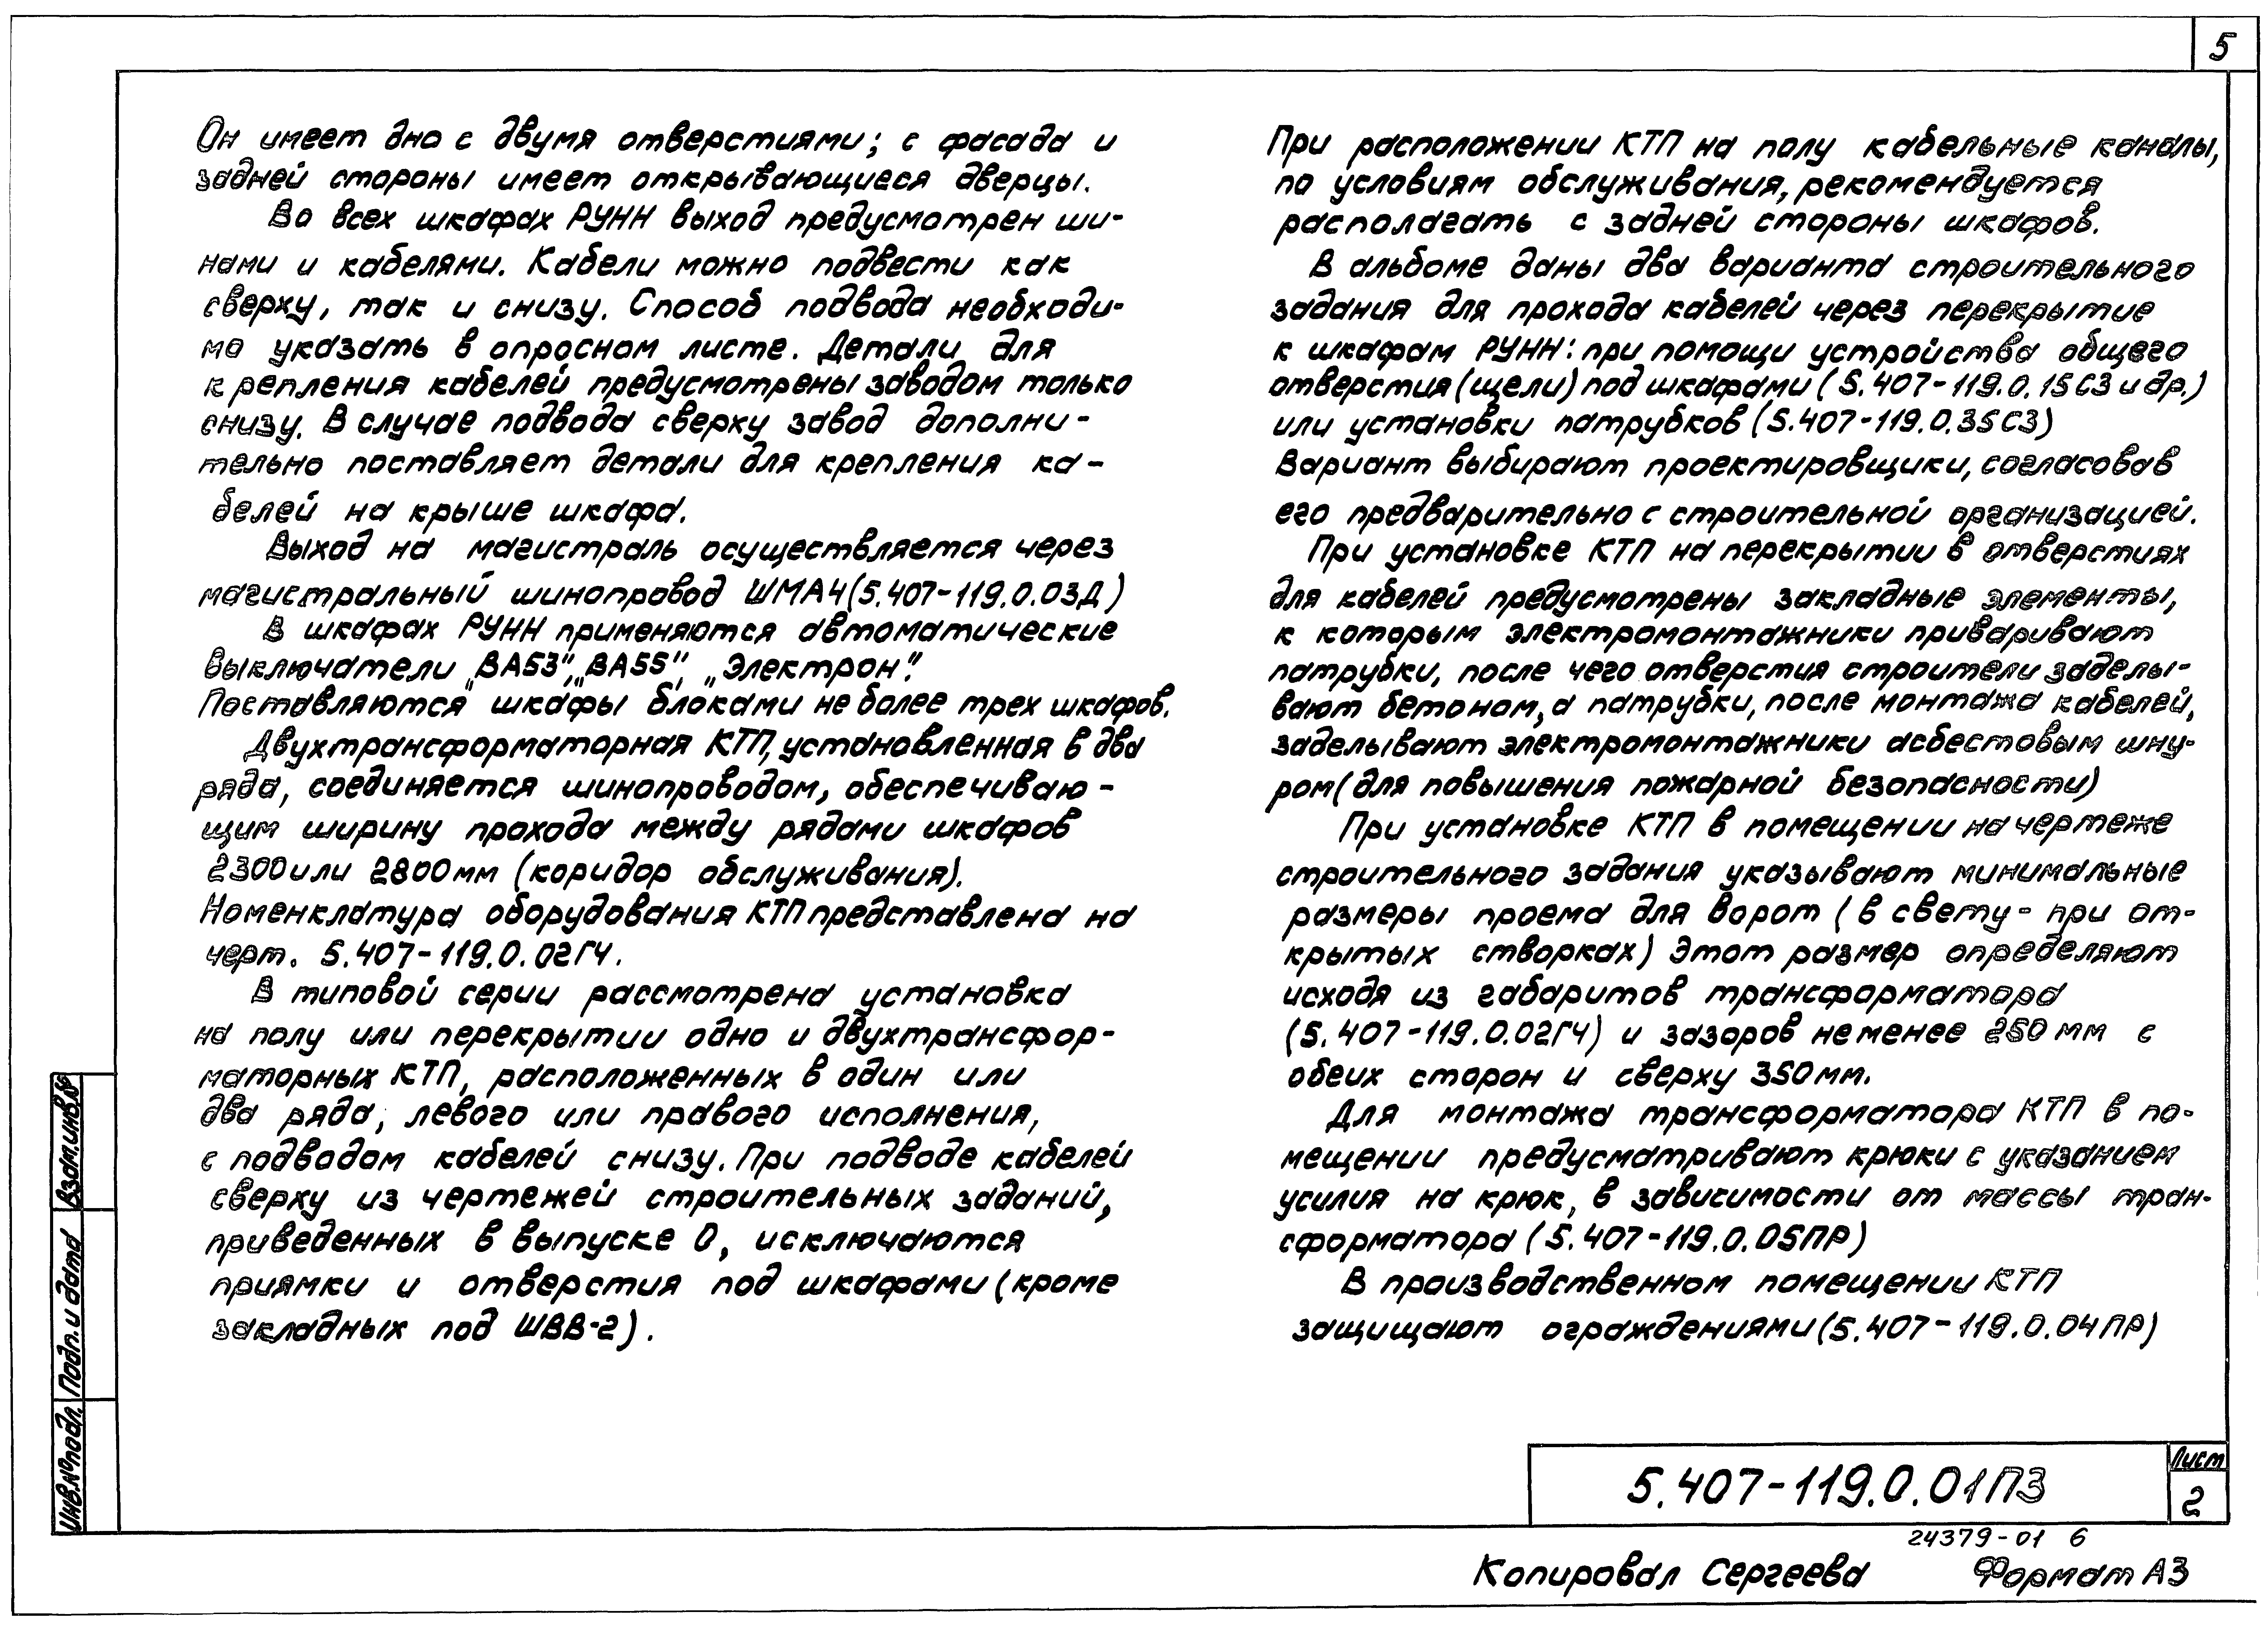 5
Он имеет дно с двумя отверстиями; с фасада и
задней стороны имеет открывающиеся дверцы.
Во всех шкафах РУНН выход предусмотрен ши-
нами и кабелями. Кабели можно подвести как
сверху, так и снизу. Способ подвода необходи-
мо указать в опросном листе. Детали для
крепления кабелей предусмотрены заводом только
снизу. В случае подвода сверху завод дополни-
тельно поставляет детали для крепления ка-
белей на крыше шкафа.
Выход на магистраль осуществляется через
магистральный шинопровод ШМА4(5.407-119.0.03Д)
В шкафах РУНН применяются автоматические
выключатели „ВА53”, „ВА55”, „Электрон”.
Поставляются шкафы блоками не более трех шкафов.
Двухтрансформаторная КТП, установленная в два
ряда, соединяется шинопроводом, обеспечиваю-
щим ширину прохода между рядами шкафов
2300 или 2800 мм (коридор обслуживания).
Номенклатура оборудования КТП представлена на
черт. 5.407-119.0.02ГЧ.
В типовой серии рассмотрена установка
на полу или перекрытии одно и двухтрансфор-
маторных КТП, расположенных в один или
два ряда, левого или правого исполнения,
с подводом кабелей снизу. При подводе кабелей
сверху из чертежей строительных заданий,
приведенных в выпуске 0, исключаются
приямки и отверстия под шкафами (кроме
закладных под ШВВ-2).
При расположении КТП на полу кабельные каналы,
по условиям обслуживания, рекомендуется
располагать с задней стороны шкафов.
В альбоме даны два варианта строительного
задания для прохода кабелей через перекрытие
к шкафам РУНН: при помощи устройства общего
отверстия (щели) под шкафами (5.407-119.0.15СЗ и др.)
или установки патрубков (5.407-119.0.35СЗ)
Вариант выбирают проектировщики, согласовав
его предварительно с строительной организацией.
При установке КТП на перекрытии в отверстиях
для кабелей предусмотрены закладные элементы,
к которым электромонтажники приваривают
патрубки, после чего отверстия строители заделы-
вают бетоном, а патрубки, после монтажа кабелей,
заделывают электромонтажники асбестовым шну-
ром (для повышения пожарной безопасности)
При установке КТП в помещении на чертеже
строительного задания указывают минимальные
размеры проема для ворот (в свету - при от-
крытых створках) Этот размер определяют
исходя из габаритов трансформатора
(5.407-119.0.02ГЧ) и зазоров не менее 250 мм с
обеих сторон и сверху 350 мм.
Для монтажа трансформатора КТП в по-
мещении предусматривают крюки с указанием
усилия на крюк, в зависимости от массы тран-
сформатора (5.407-119.0.05ПР)
В производственном помещении КТП
защищают ограждениями (5.407-119.0.04ПР)
Взам.инв.№
Подп. и дата
Инв.№ подл.
5.407-119.0.01ПЗ
Лист
2
24379-01 6
Копировал Сергеева Формат А3